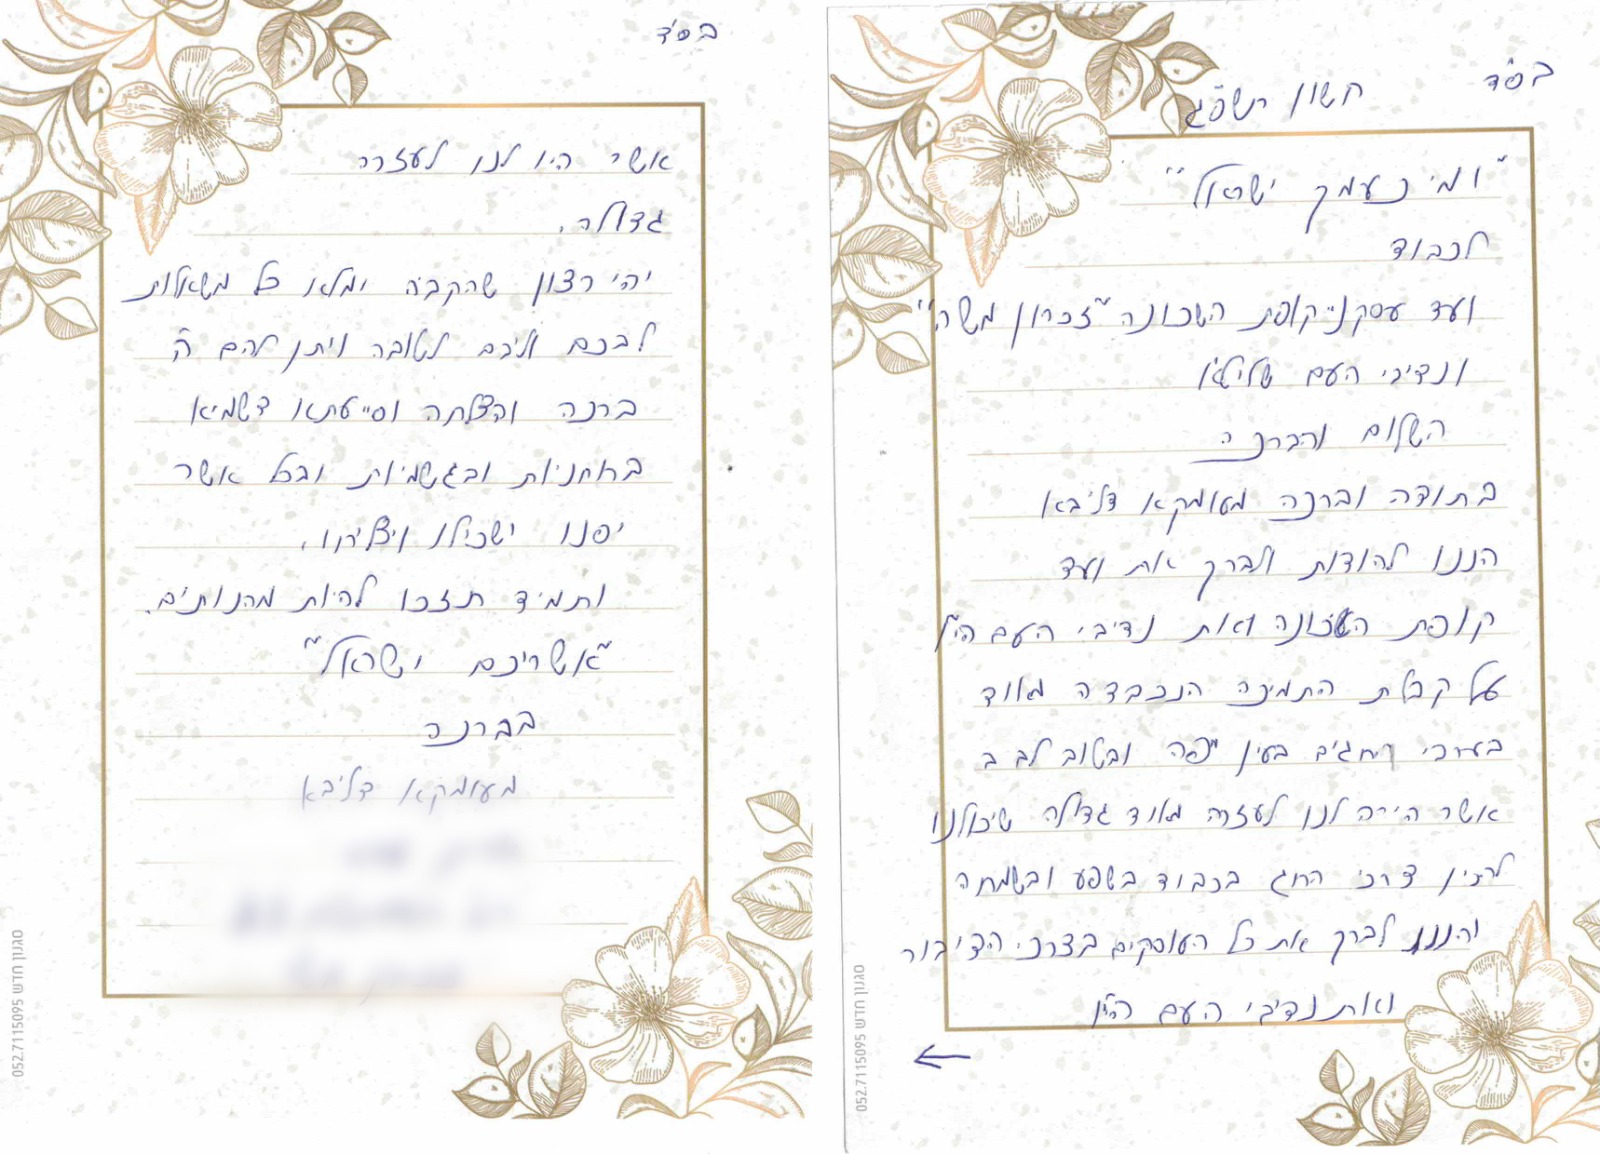 בס"ד
חשון תשפ"ג
"ומי כעמך ישראל"
לכבוד
ועד עסקני קופת השכונה "זכרון משה"
ונדיבי העם שליט"א
השלום והברכה
בתודה וברכה מעומקא דליבא
הננו להודות ולברך את ועד
קופת השכונה ואת נדיבי העם הי"ו
על קבלת התמיכה הנכבדה מאוד
בערכי החגים בעין יפה ובטוב לבב
אשר הייה לנו לעזרה מאוד גדולה שיכולנו
להכין צרכי החג בכבוד בשפע ובשמחה
והננו לברך את כל העוסקים בצרכי הציבור
ואת נדיבי העם הי"ו
בס"ד
אשר היו לנו לעזרה
גדולה.
יהי רצון שהקב"ה ימלא כל משאלות
לבכם אליכם לטובה ויתן להם ה'
ברכה והצלחה וסייעתא דשמיא
ברוחניות ובגשמיות ובכל אשר
יפנו ישכילו ויצליחו.
ותמיד תזכו להיות מהנותנים.
"אשריכם ישראל"
בברכה
מעומקא דליבא
סגנון חדש 052.7115095
סגנון חדש 052.7115095